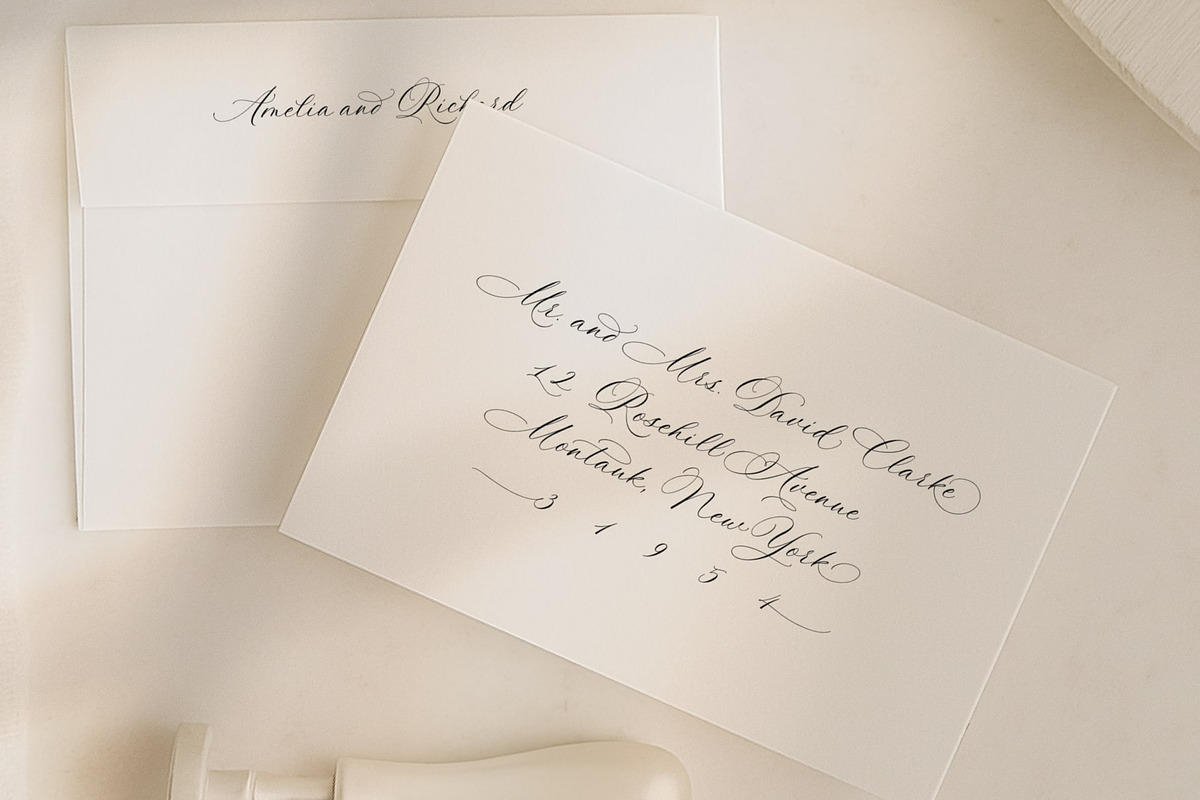 Amelia and Richard
Mr. and Mrs. David Clarke
12 Rosehill Avenue
Montauk, New York
3 1 9 5 4